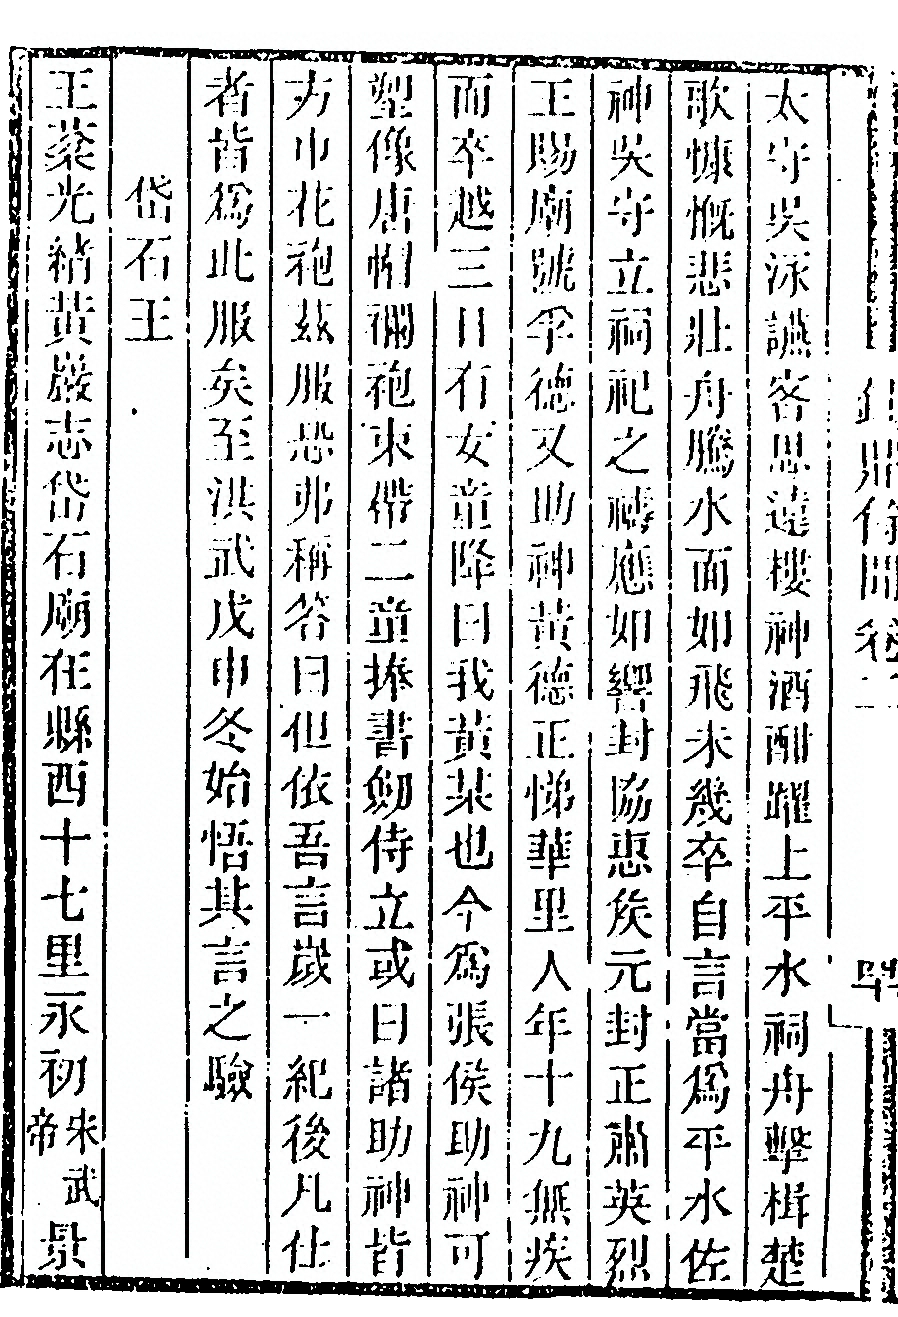 太守吳泳讌客思遠樓神酒酣躍上平水祠舟擊楫楚
歌慷慨悲壯舟騰水面如飛未幾卒自言當為平水佐
神吳守立祠祀之禱應如響封協惠侯元封正肅英烈
王賜廟號孚德又助神黃德正悌華里人年十九無疾
而卒越三日有女童降曰我黃某也今為張侯助神可
塑像唐帽襴袍束帶二童捧書劒侍立或曰諸助神皆
方巾花袍茲服恐弗稱答曰但依吾言歲一紀後凡仕
者皆為此服矣至洪武戊申冬始悟其言之驗
岱石王
王棻光緒黃巖志岱石廟在縣西十七里永初宋武帝景
卷二